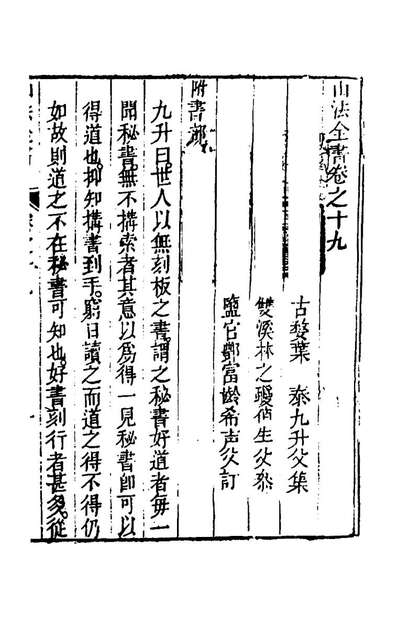 山法全書卷之十九
古婺葉　泰九升父集
雙溪林之翰佑生父參
鹽官鄧富齡希声父訂
附書部
九升曰世人以無刻板之書謂之秘書好道者毎一
聞秘書無不搆索者其意以為得一見秘書即可以
得道也抑知搆書到手窮日讀之而道之得不得仍
如故則道之不在秘書可知也好書刻行者甚多從